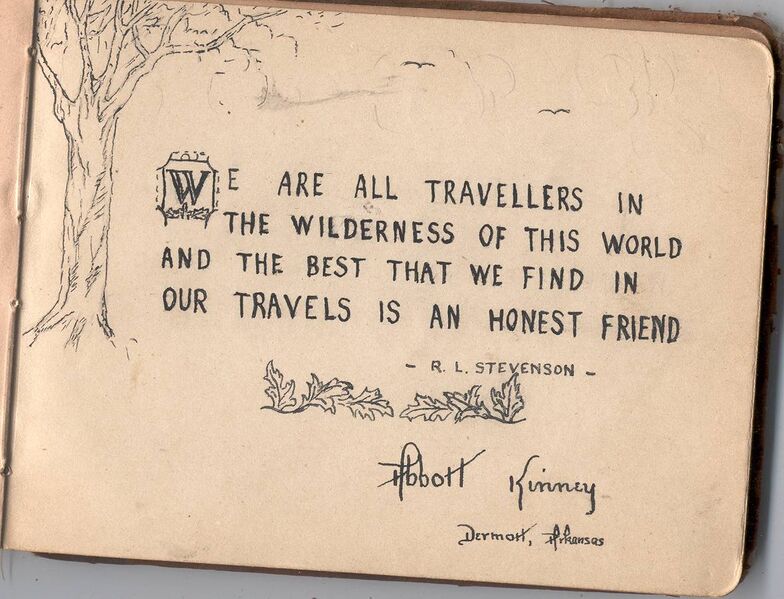 WE ARE ALL TRAVELLERS IN
THE WILDERNESS OF THIS WORLD
AND THE BEST THAT WE FIND IN
OUR TRAVELS IS AN HONEST FRIEND
- R. L. STEVENSON -
Abbott Kinney
Dermott, Arkansas